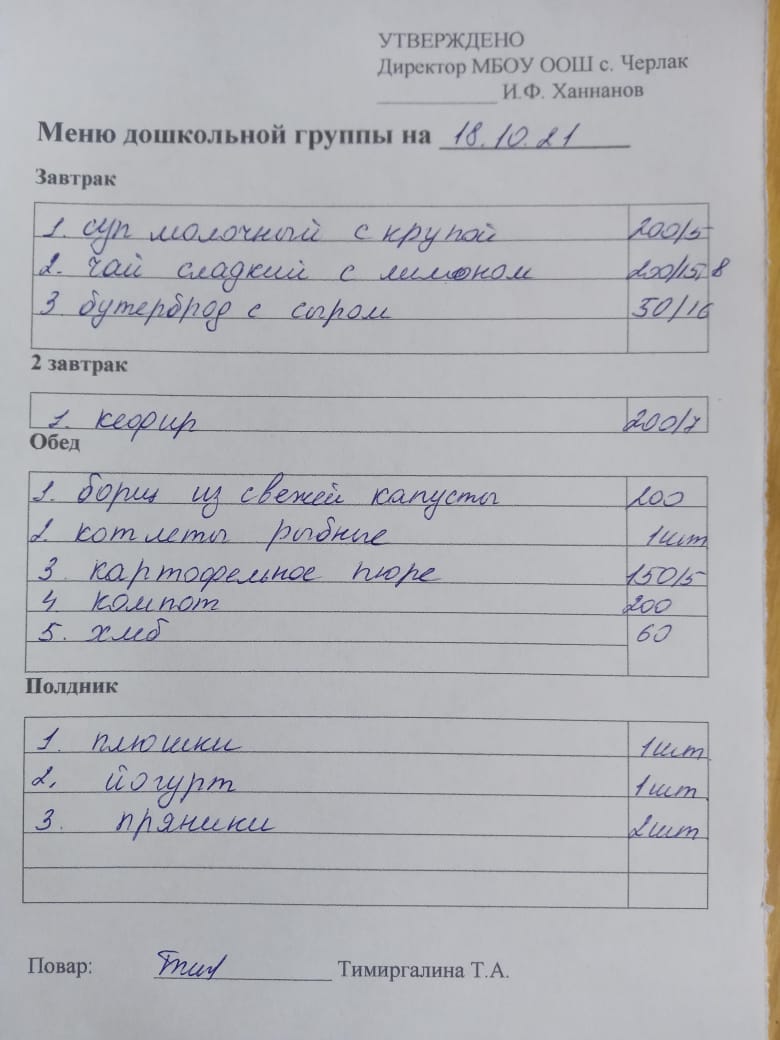 УТВЕРЖДЕНО
Директор МБОУ ООШ с. Черлак
____________ И.Ф. Ханнанов
Меню дошкольной группы на 18.10.21
Завтрак
1. суп молочный с крупой 200/5
2. чай сладкий с лимоном 200/15,8
3 бутерброд с сыром 50/16
2 завтрак
1. кефир 200/7
Обед
1. борщ из свежей капусты 200
2. котлеты рыбные 1шт
3. картофельное пюре 150/5
4. компот 200
5. хлеб 60
Полдник
1. плюшки 1шт.
2. йогурт 1шт.
3. пряники 2шт
Повар: Тимиргалина Т.А.